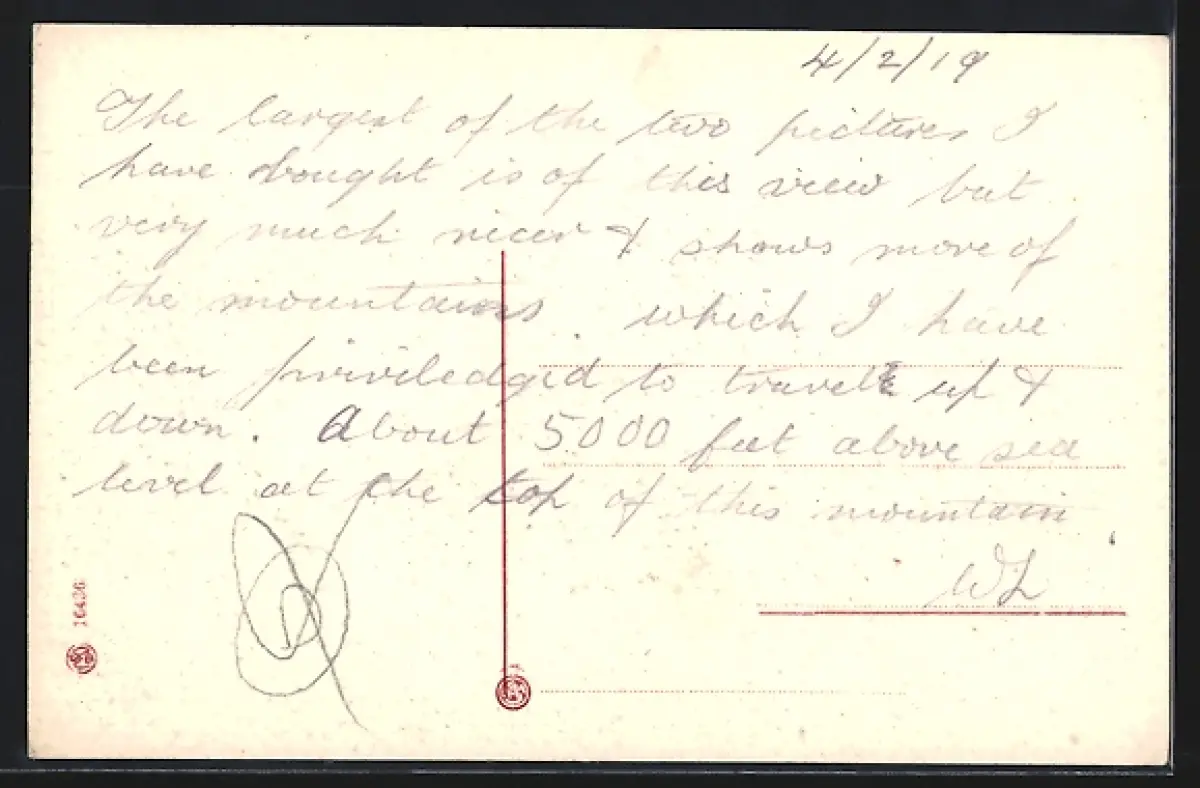 4/2/19
The largest of the two pictures I
have bought is of this view but
very much nicer & shows more of
the mountains. which I have
been priviledgid to travell up &
down. About 5000 feet above sea
level at the top of this mountain.
WL
16436